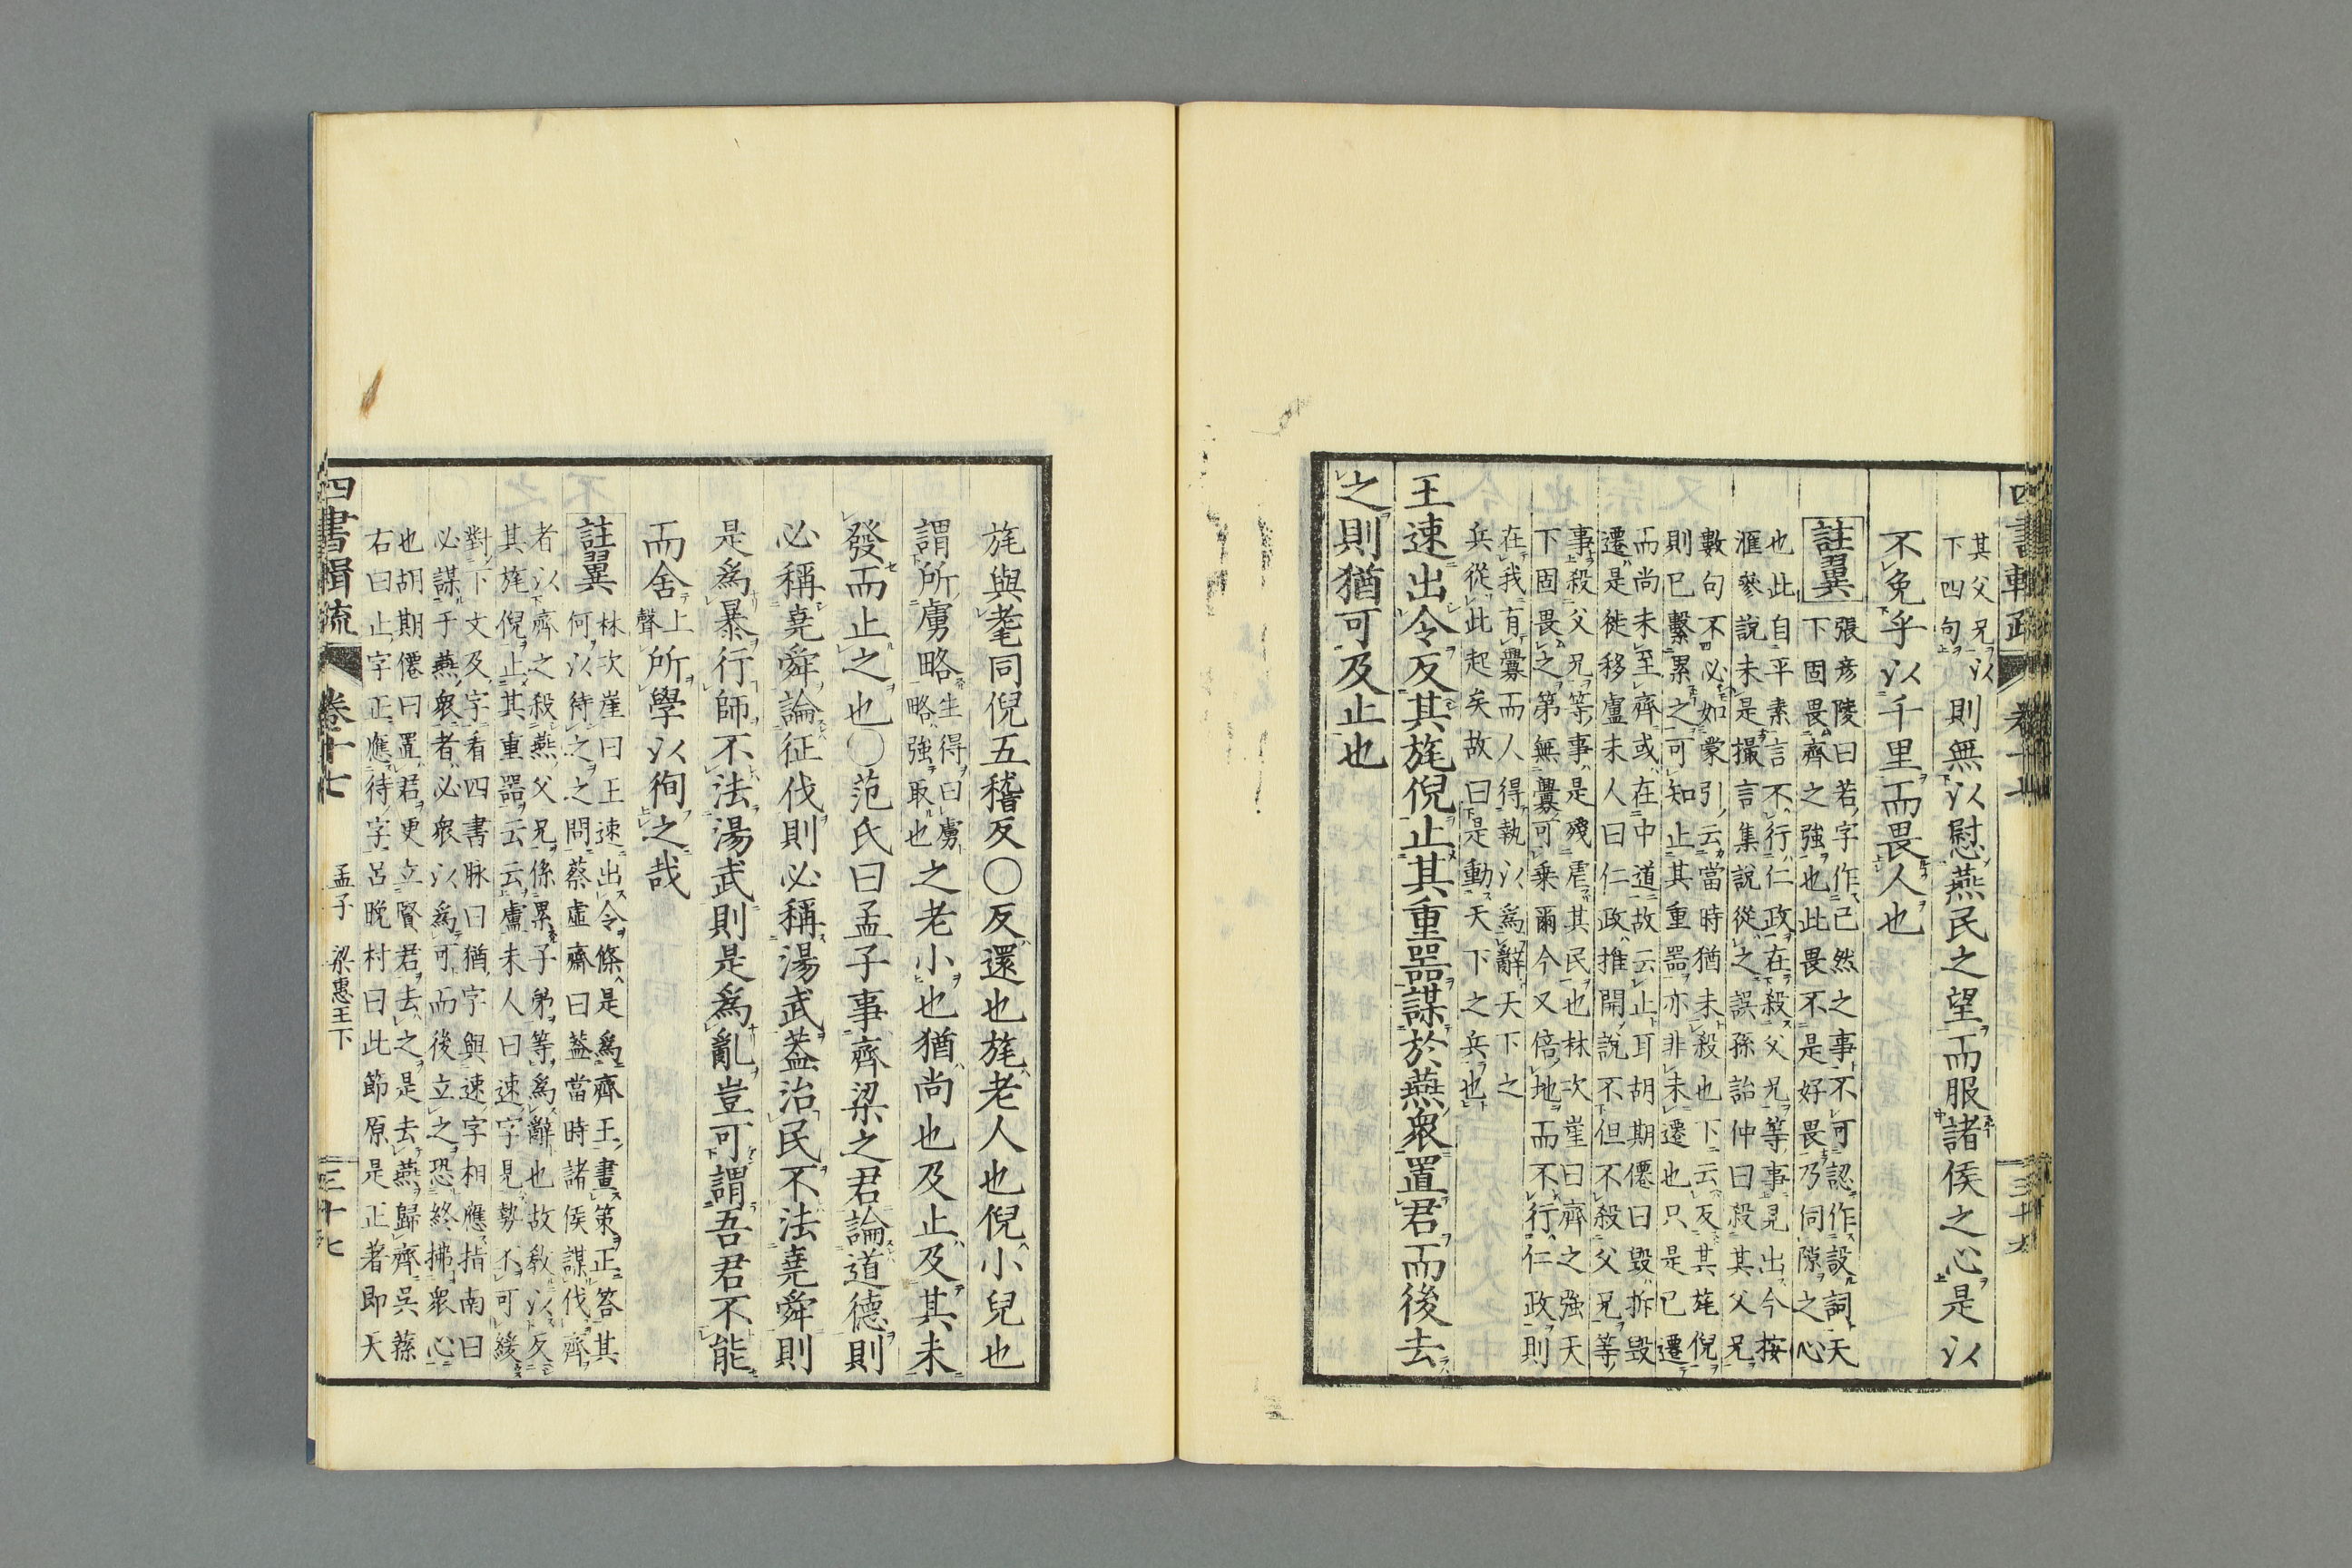 其父兄以則無以慰燕民之望而服諸侯之心是以
下四句
不免乎以千里而畏人也
註翼
張彦陵曰若字作已然之事不可認作設詞天
下固畏齊之強也此畏不是好畏乃伺隙之心
也此自平素言不行仁政在殺父兄等事見出今按
滙參說未是撮言集說從之誤孫詒仲曰殺其父兄
數句不必如蒙引云當時猶未殺也下云反其旄倪
則已繫累之可知止其重器亦非未遷也只是已遷
而尚未至齊或在中道故云止耳胡期僊曰毀拆毀
遷是徙移盧未人曰仁政推開說不但不殺父兄等
事殺父兄等事是殘虐其民也林次崖曰齊之強天
下固畏之第無釁可乗爾今又倍地而不行仁政則
在我有釁而人得執以爲辭天下之
兵從此起矣故曰是動天下之兵也
王速出令反其旄倪止其重器謀於燕衆置君而後去
之則猶可及止也
旄與耄同倪五稽反〇反還也旄老人也倪小兒也
謂所虜略
生得曰虜
略強取也
之老小也猶尚也及止及其未
發而止之也〇范氏曰孟子事齊梁之君論道德則
必稱堯舜論征伐則必稱湯武葢治民不法堯舜則
是爲暴行師不法湯武則是爲亂豈可謂吾君不能
而舍
上
聲
所學以徇之哉
註翼
林次崖曰王速出令條是爲齊王畫策正答其
何以待之之問蔡虛齋曰葢當時諸侯謀伐齊
者以齊之殺燕父兄係累子弟等爲辭也故敎以反
其旄倪止其重器云云盧未人曰速字見勢不可緩
對下文及字看四書脉曰猶字與速字相應指南曰
必謀于燕衆者必衆以爲可而後立之恐終拂衆心
也胡期僊曰置君更立賢君去之是去燕歸齊吳蓀
右曰止字正應待字呂晚村曰此節原是正著即天
四書輯疏
卷十七
孟子 梁惠王下
三十七